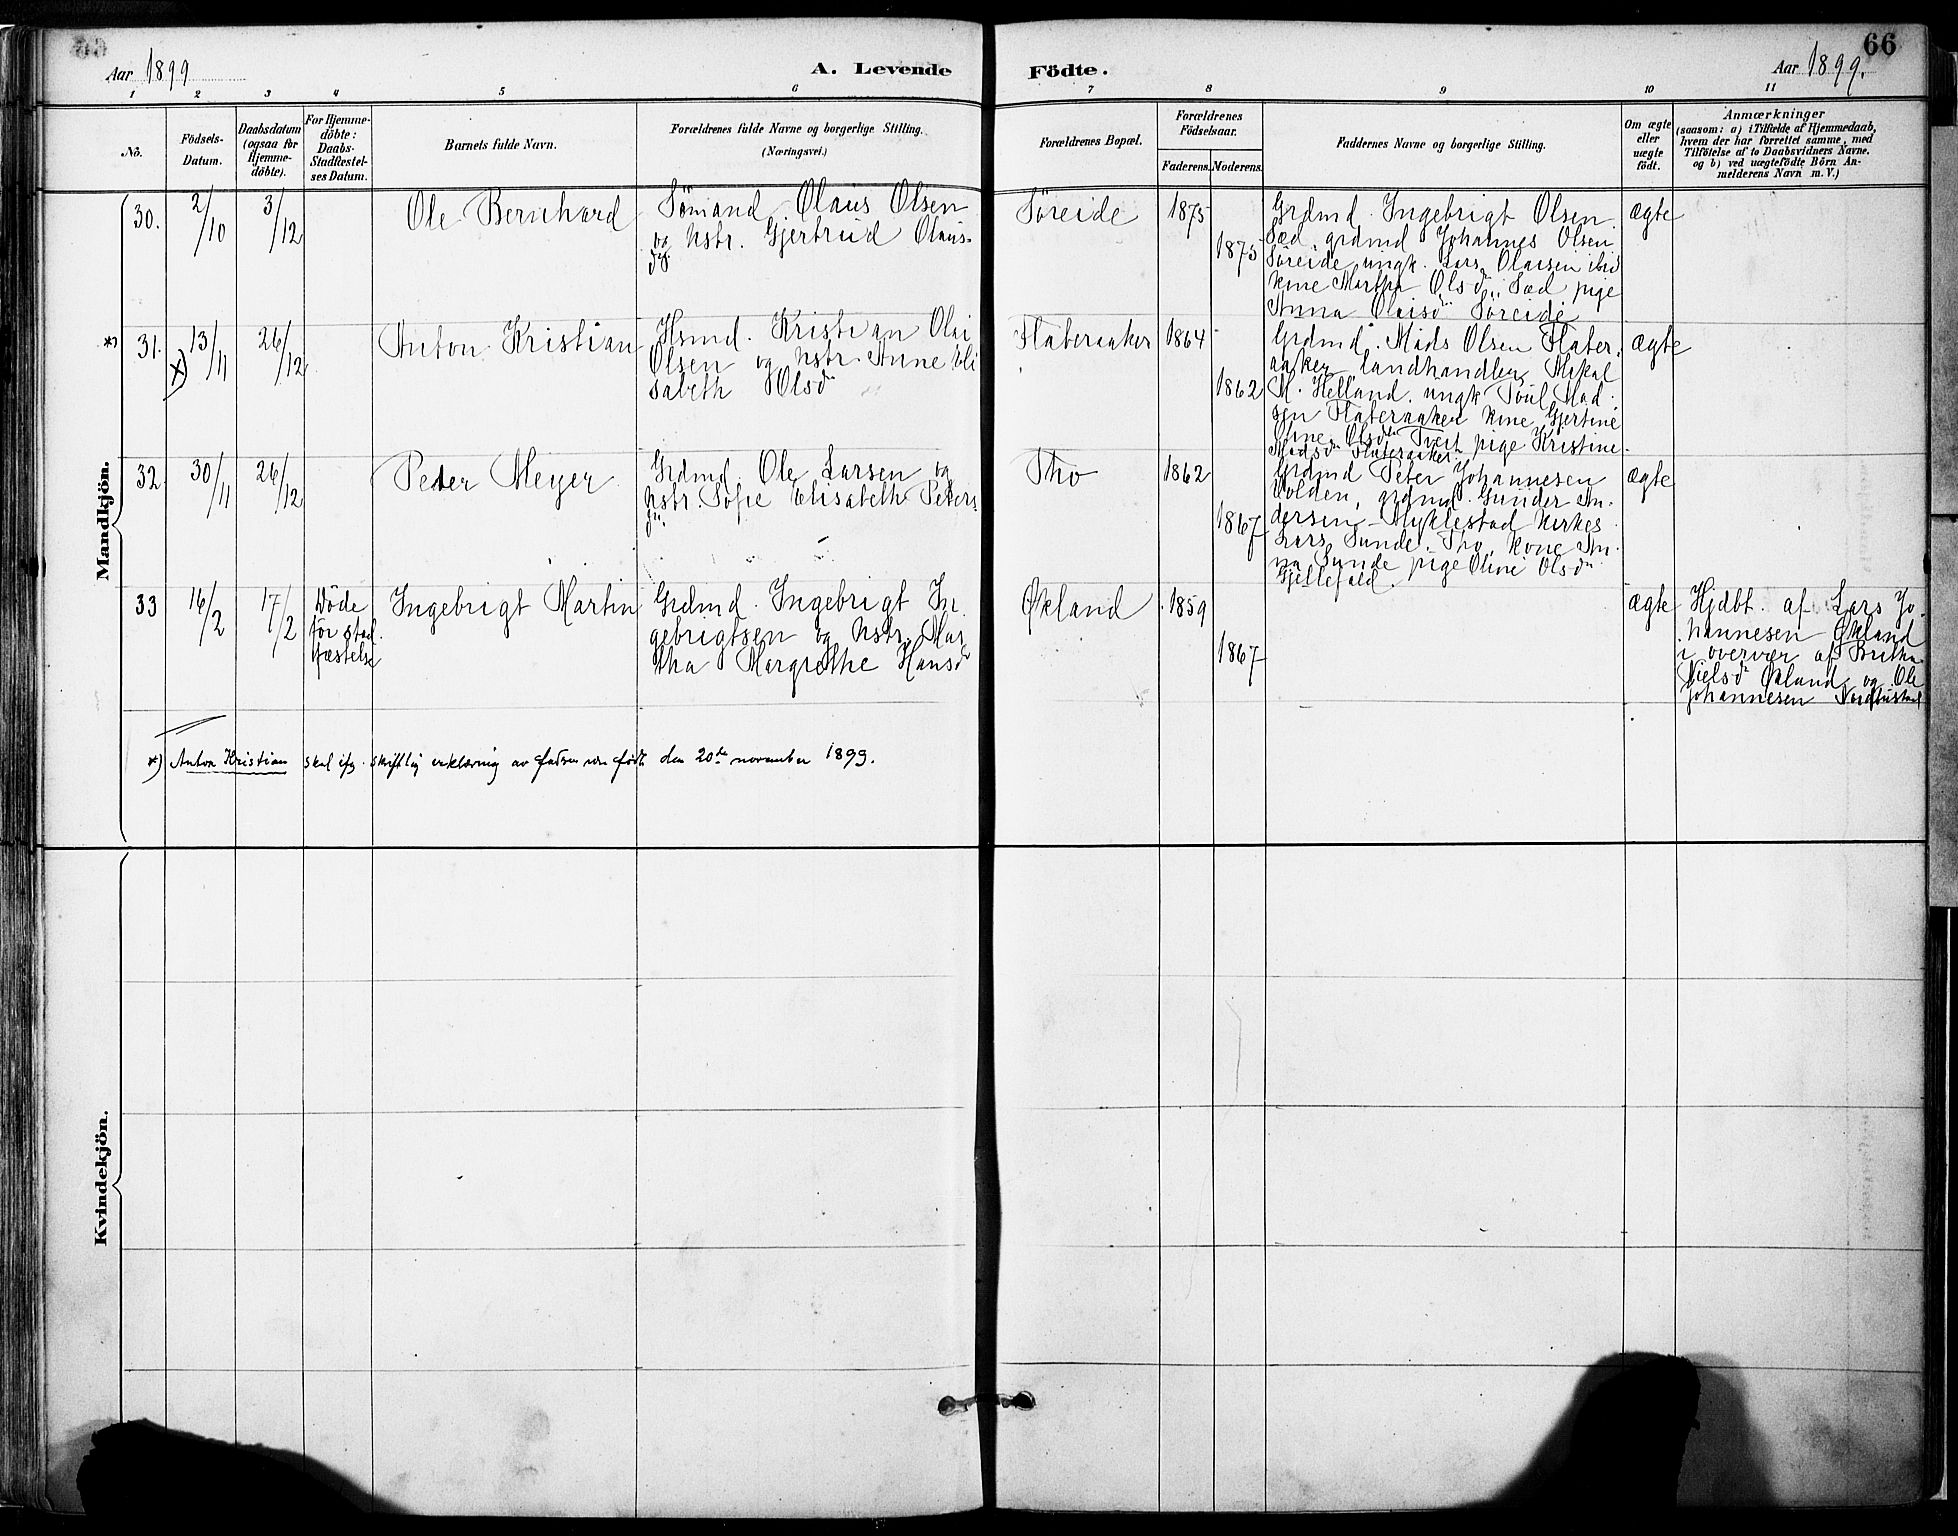 66
Aar 1899
A. Levende
Födte.
Aar 1899.
1 2 3 4 5 6 7 8 9 10 11
Nö.
Födsels-
Datum.
Daabsdatum
(ogsaa for
Hjemme-
döbte).
For Hjemme-
döbte:
Daabs-
Stadfæstel-
ses Datum.
Barnets fulde Navn.
Forældrenes fulde Navne og borgerlige Stilling.
(Næringsvei.)
Forældrenes Bopæl.
Forældrenes
Födselsaar.
Faderens. Moderens.
Faddernes Navne og borgerlige Stilling.
Om ægte
eller
uægte
født.
Anmærkninger
(saasom: a) i Tilfælde af Hjemmedaab,
hvem der har forrettet samme, med
Tilföielse af to Daabsvidners Navne.
og b) ved uægtefödte Börn An-
melderens Navn m. V.)
Mandkjön.
30.
2/10
3/12
Ole Bernhard
Sømand Olaus Olsen
og hstr. Gjertrud Olaus-
dtr.
Søreide
1875
1875
Grdmd. Ingebrigt Olsen
Sæd, grdmd Johannes Olsen
Søreide, ungk. Lars Olaisen ibid
kone Martha Olsd. Sæd pige
Anna Olaisd Søreide
ægte
*)
31.
x)
13/11
26/12
Anton Kristian
Hsmd. Kristian Olai
Olsen og hstr Anne Eli
sabeth Olsd
Flateraaker
1864
1862
Grdmd. Mads Olsen Flater-
aaker, landhandler Mikal
M. Helland, ungk Poul Mad-
sen Flateraaker kone Gjertine
Oline Olsd Tveit pige Kristine
Madsd Flateraaker
ægte
32
30/11
26/12
Peder Meyer
Grdmd. Ole Larsen og
hstr. Sofie Elisabeth Peters
dtr.
Tho
1862
1867
Grdmd Peter Johannesen
Volden, grdmd. Gunder An-
dersen Myklestad kirkes.
Lars Sunde, Tho, kone An-
na Sunde pige Oline Olsd
Gjellefald.
ægte
33
16/2
17/2
Døde
før stad
fæstelse
Ingebrigt Martin
Grdmd. Ingebrigt In-
gebrigtsen og hstr. Mar-
tha Margrethe Hansd
Økland
1859
1867
ægte
Hjdbt. af Lars Jo-
hannesen Økland
i overvær af Britha
Nielsd Økland og Ole
Johannesen
*) Anton Kristian skal ifg. skriftlig erklæring av faderen være født den 20de november 1899.
Kvindekjön.